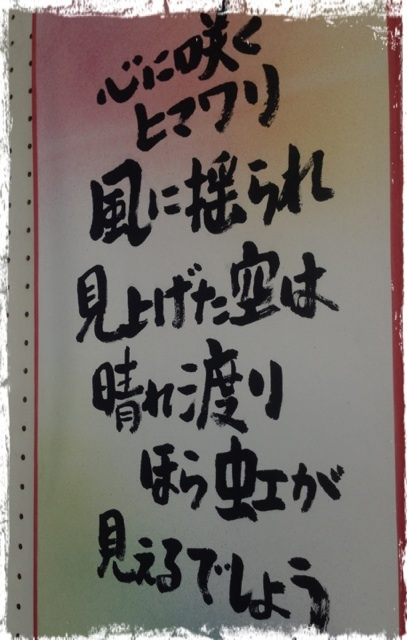 心に咲く
ヒマワリ
風に揺られ
見上げた空は
晴れ渡り
ほら虹が
見えるでしょう